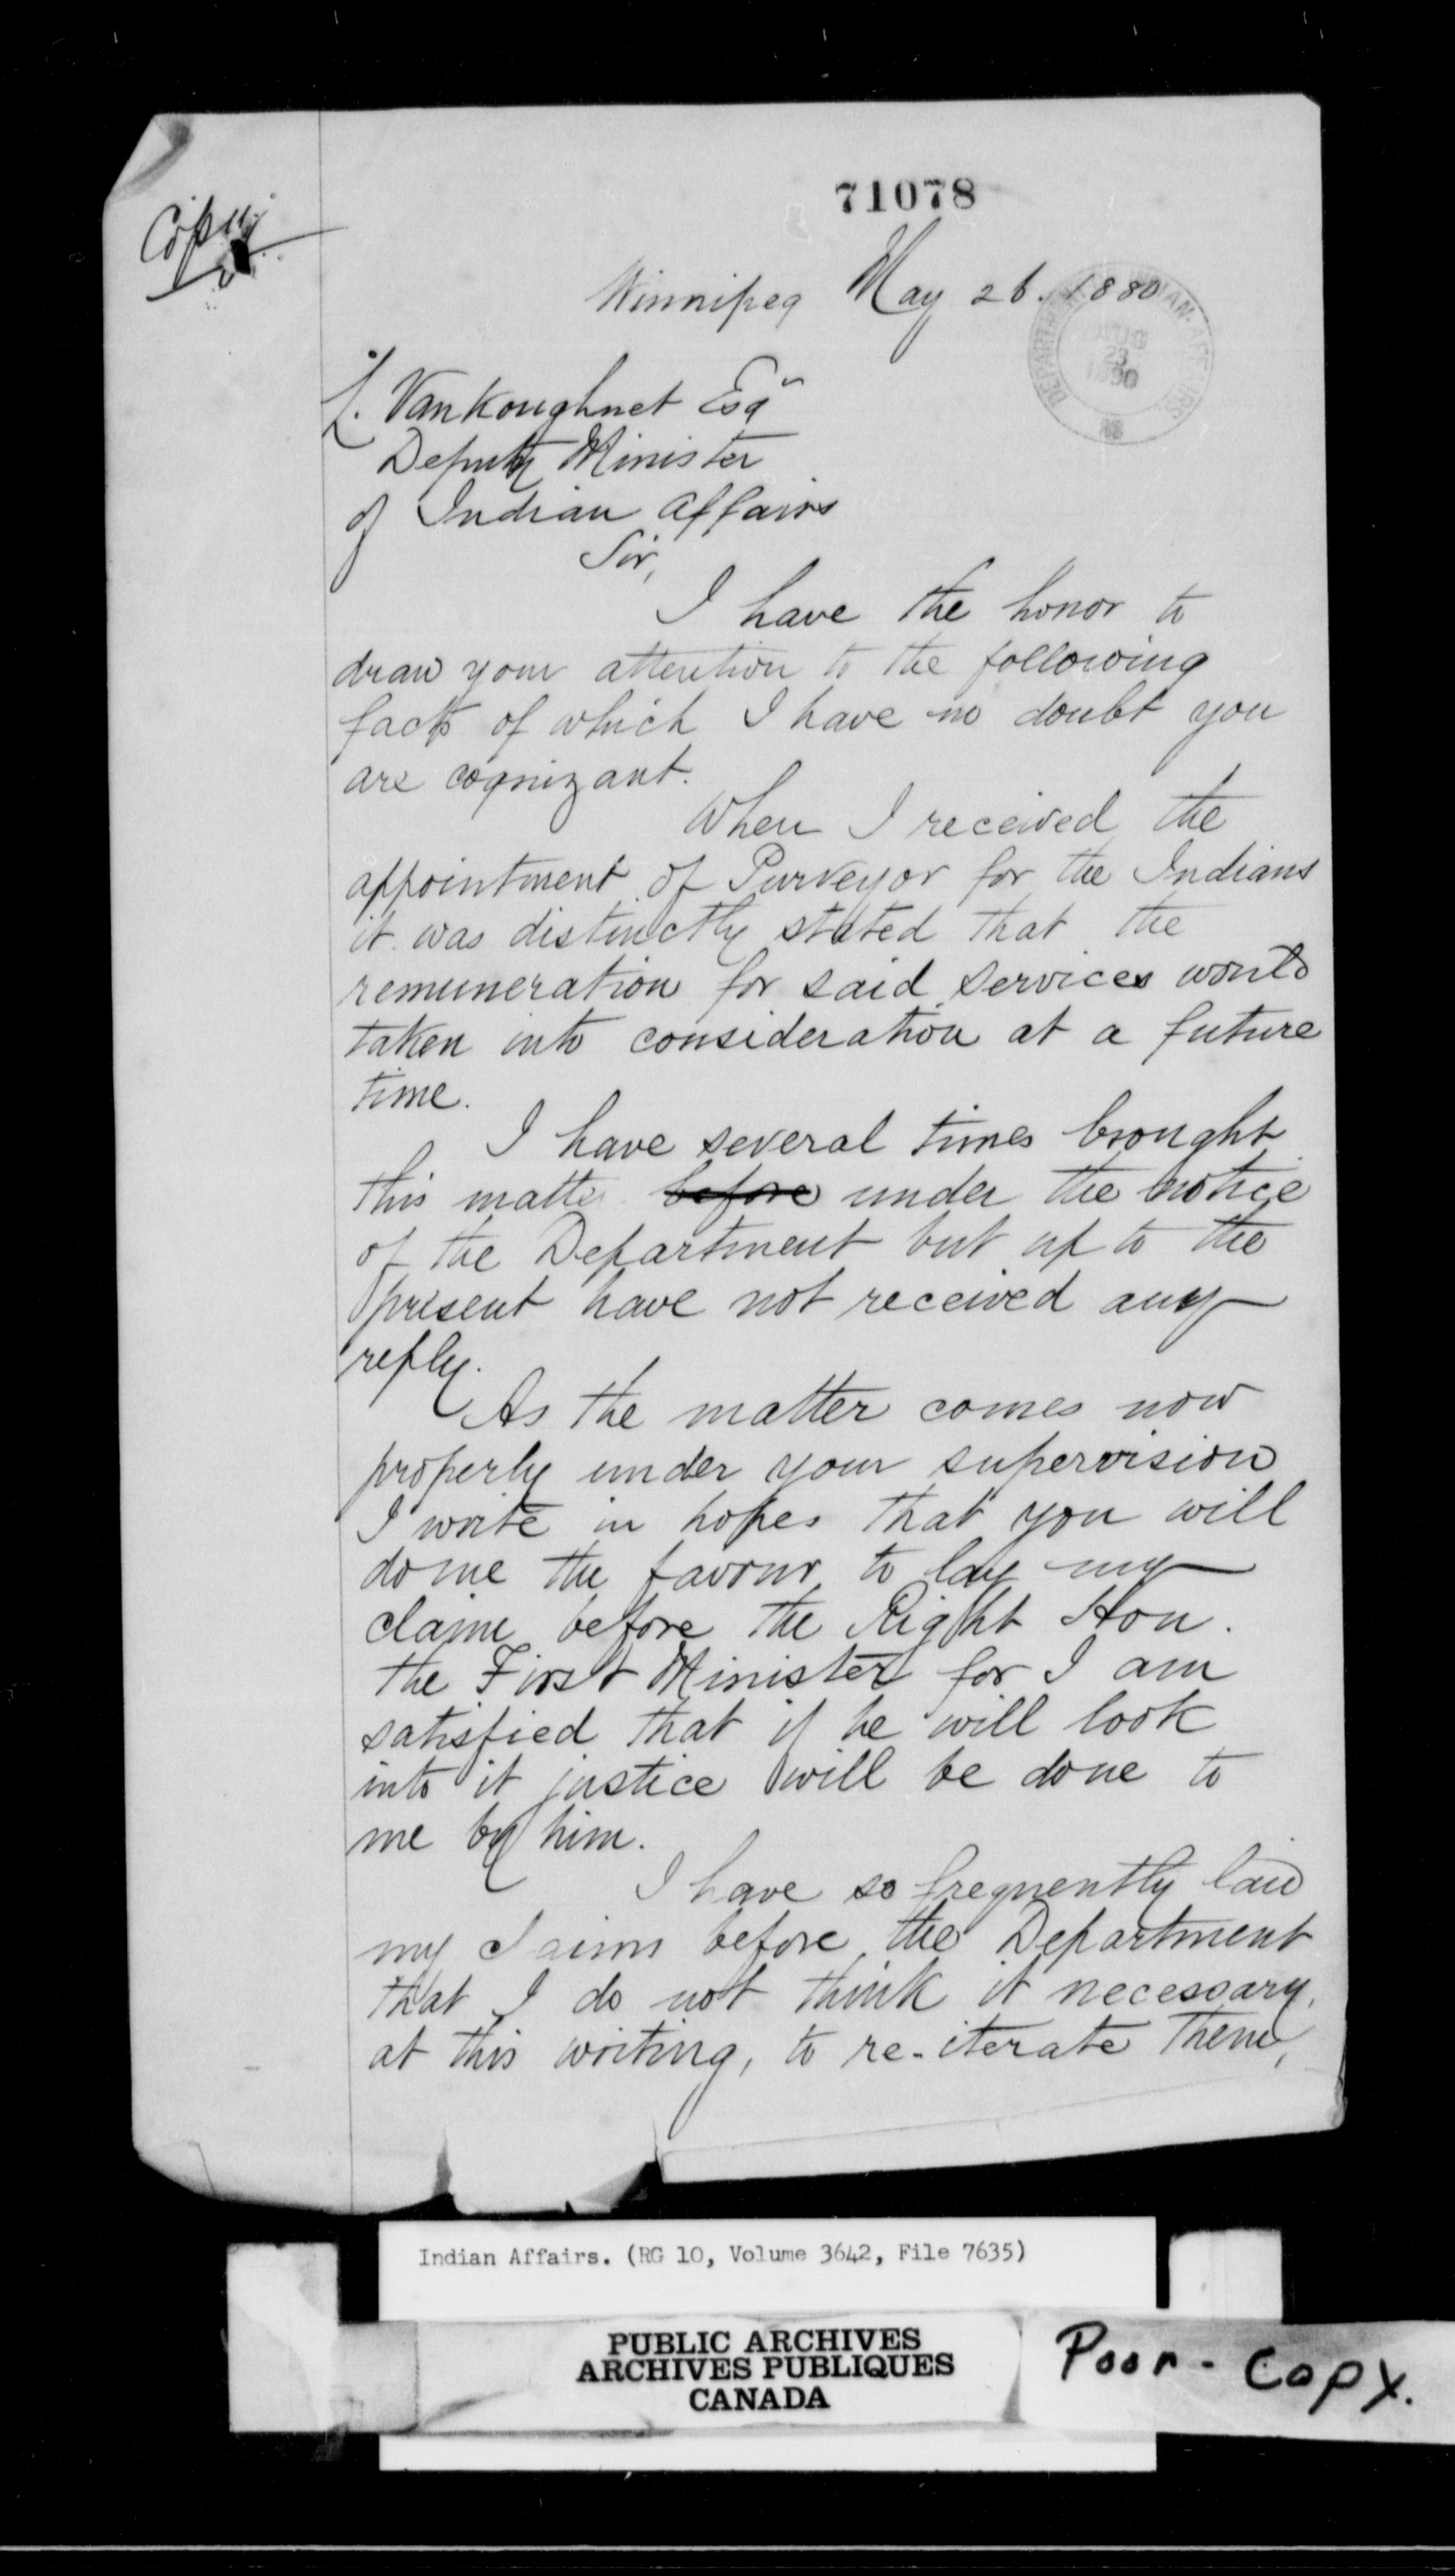 71078
Copy
Winnipeg May 26. 1880
DEPARTMENT INDIAN AFFAIRS
AUG
23
1890
L. Vankoughnet Esqr
Deputy Minister
of Indian Affairs
Sir,
I have the honor to
draw your attention to the following
facts of which I have no doubt you
are cognizant.
When I received the
appointment of Purveyor for the Indians
it was distinctly stated that the
remuneration for said services would
taken into consideration at a future
time.
I have several times brought
this matter before under the notice
of the Department but up to the
present have not received any
reply.
As the matter comes now
properly under your supervision
I write in hopes that you will
do me the favour to lay my
claim before the Right Hon.
the First Minister for I am
satisfied that if he will look
into it justice will be done to
me by him.
I have so frequently laid
my claims before the Department
that I do not think it necessary,
at this writing, to re-iterate them,
Indian Affairs. (RG 10, Volume 3642, File 7635)
PUBLIC ARCHIVES
ARCHIVES PUBLIQUES
CANADA
Poor - Copy.